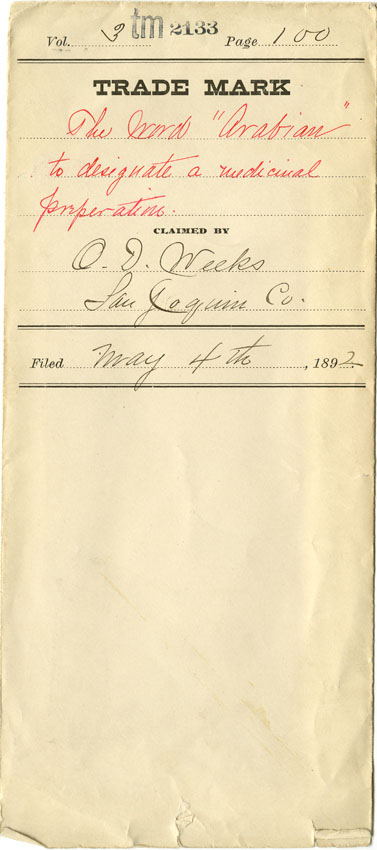 Vol. 3 tm 2133 Page 100
TRADE MARK
The Word "Arabian"
to designate a medicinal
preperation.
CLAIMED BY
O. D. Weeks
San Joaquin Co.
Filed May 4th, 1892